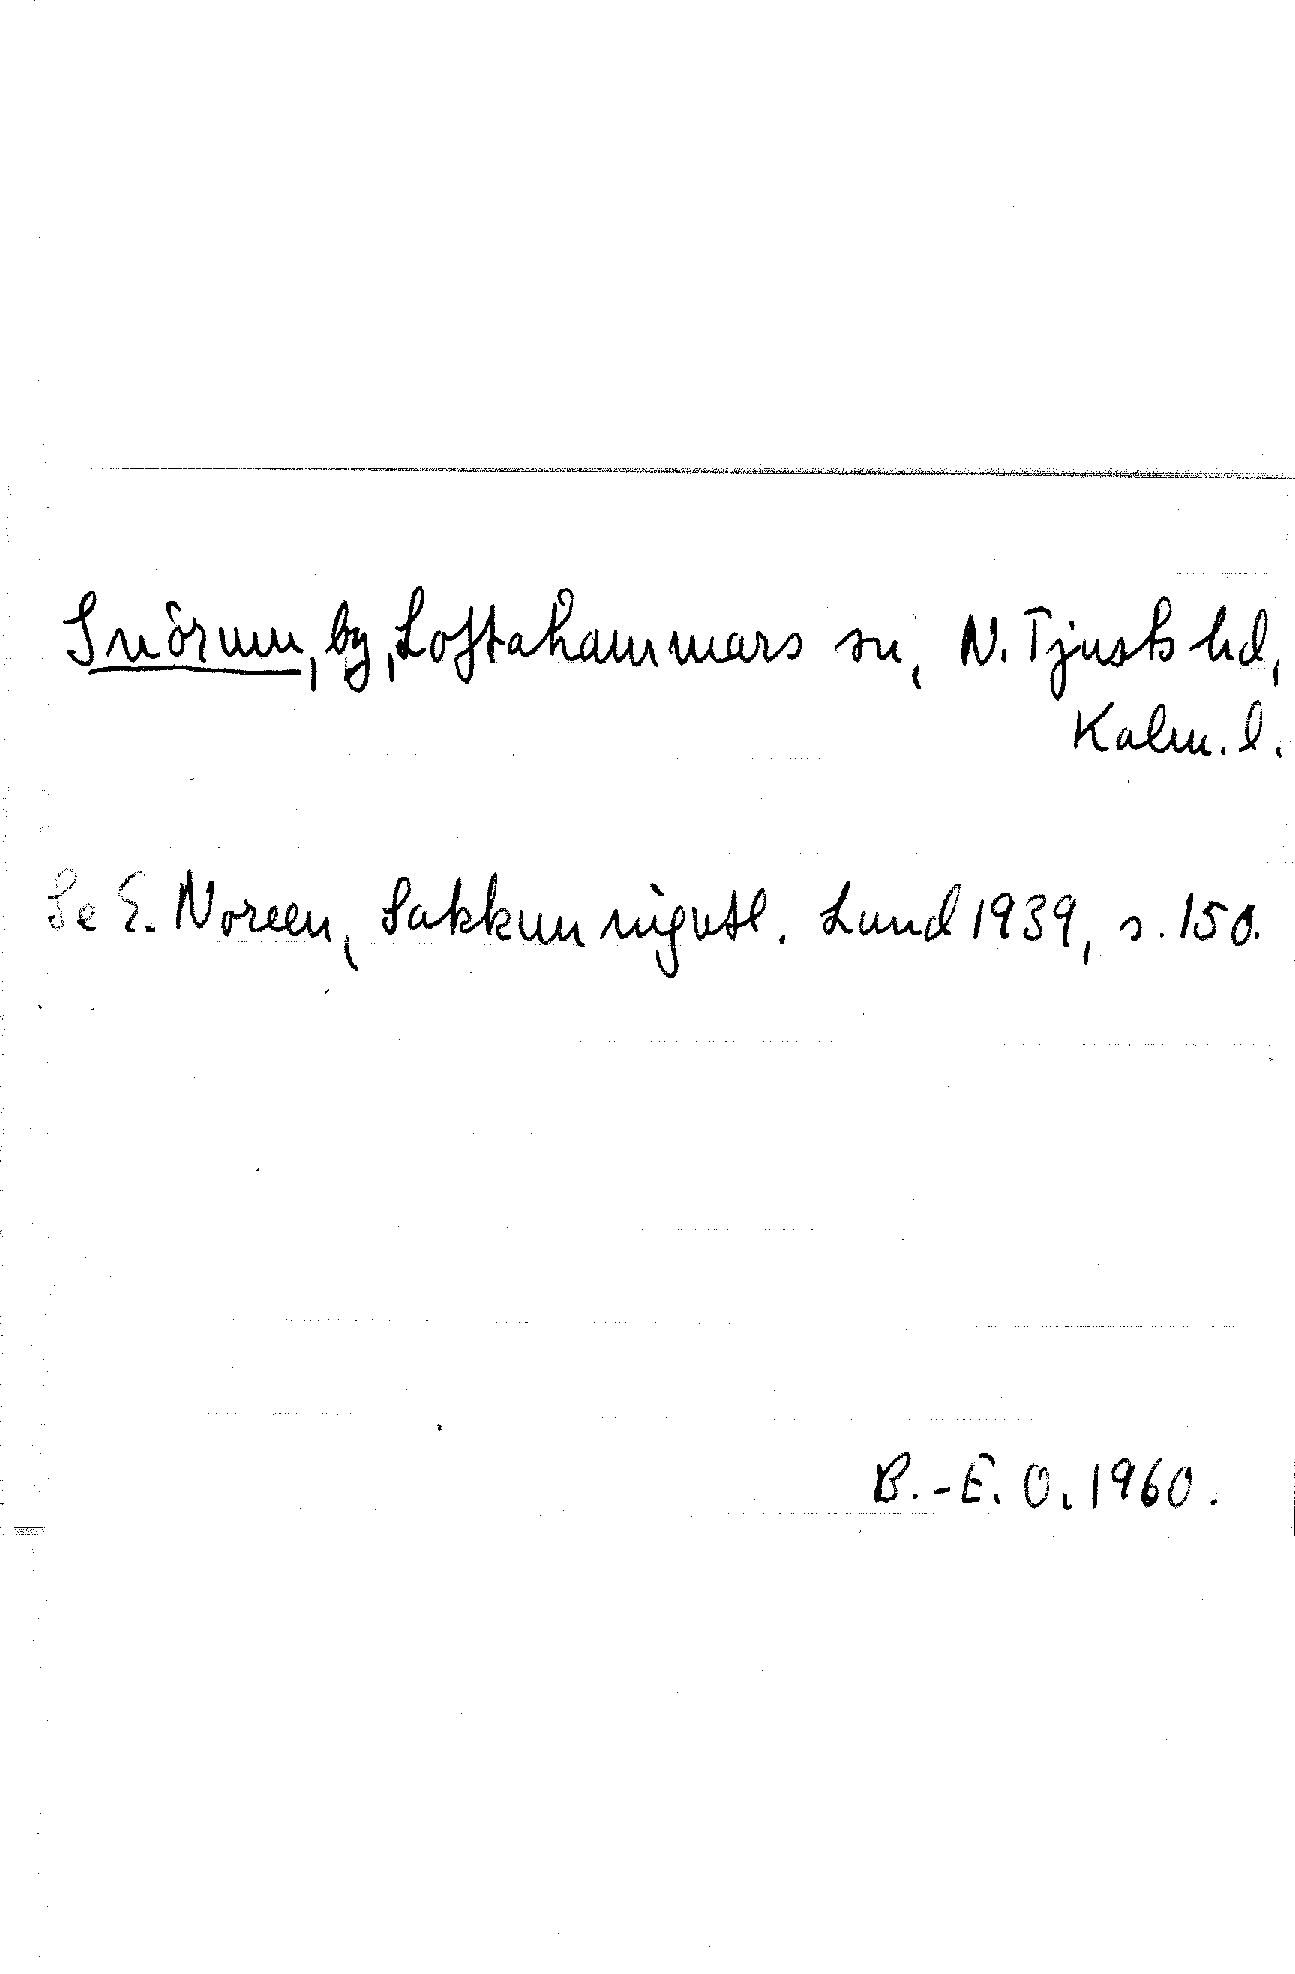 Snörum, by, Loftahammars sn, N. Tjusts hd,
Kalm. l.
Se E. Noreen, Sakkunnigutl. Lund 1939, s. 150.
B.-E. O. 1960.